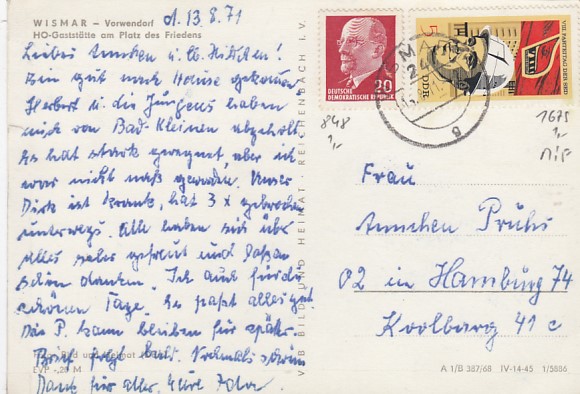 WISMAR – Vorwendorf
HO-Gaststätte am Platz des Friedens
d. 13.8.71
Liebes Annchen u. lb.
Bin gut nach Hause gekommen
Herbert u. die Jungens haben
mich von Bad-Kleinen abgeholt
Es hat stark geregnet, aber ich
war nicht naß geworden. Unser
Dirk ist krank, hat 3 x gebrochen
unterwegs. Alle haben sich über
alles sehr gefreut und laßen
schön danken. Ich auch für die
schönen Tage. Es paßt alles gut.
Das P. kann bleiben für später.
Brief folgt bald. Nochmals schönen
Dank für alles. Eure Ida.
Bild und Heimat
EVP -,20 M
VEB BILD UND HEIMAT · REICHENBACH I. V.
DEUTSCHE
DEMOKRATISCHE REPUBLIK
20
5
VIII. PARTEITAG DER SED
VIII
DDR
848
1675
MiF
Frau
Annchen Prühs
02 in Hamburg 74
Koolbarg 41 c
A 1/B 387/68 IV-14-45 1/5886